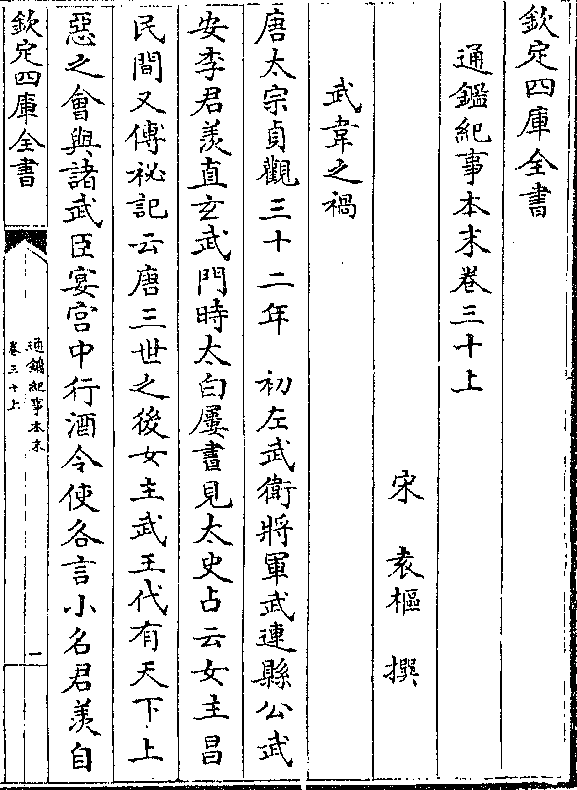 欽定四庫全書
通鑑紀事本末卷三十上
宋 袁樞 撰
武韋之禍
唐太宗貞觀三十二年 初左武衛將軍武連縣公武
安李君羨直玄武門時太白屢書見太史占云女主昌
民間又傳祕記云唐三世之後女主武王代有天下上
惡之會與諸武臣宴宫中行酒令使各言小名君羨自
欽定四庫全書
通鑑紀事本末
卷三十上
一